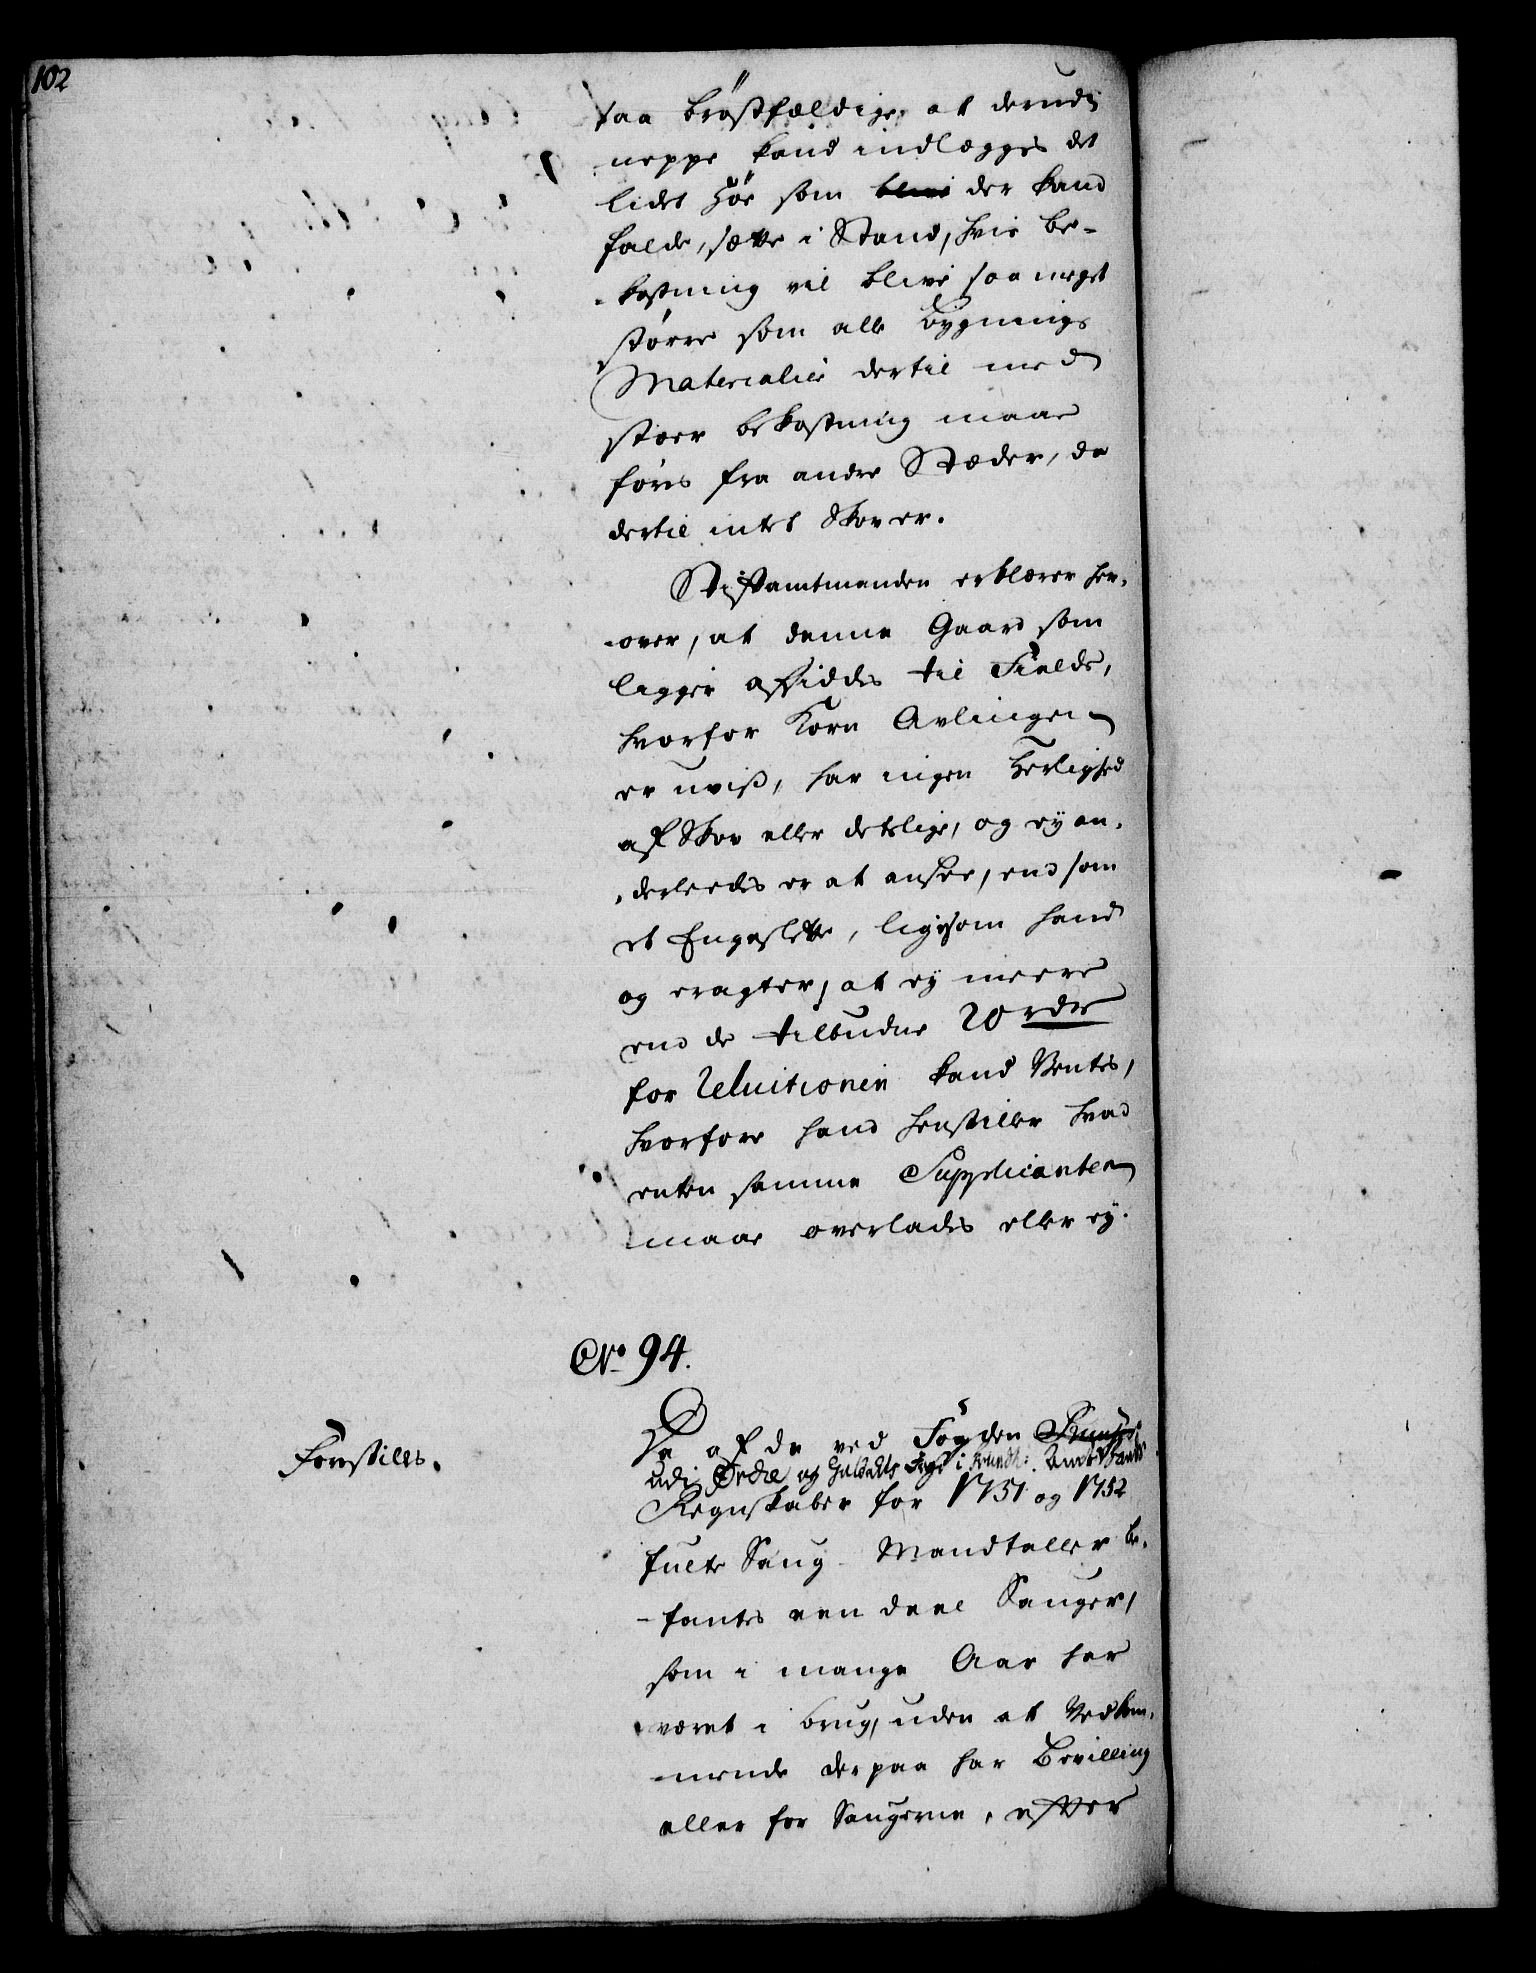 102
saa brøstfældige, at derudi
neppe kand indlægges det
lidet Høe som blive der kand
falde, sætte i Stand, hvis be-
-kostning vil blive saa meget
større som alle Bygnings
Materialier dertil med
stoer bekostning maae
føres fra andre Stæder, da
dertil intet Skov er.
Stiftamtmanden erklærer her-
-over, at denne Gaard som
ligger afsiddes til Fields,
hvorfor Korn Avlingen
er uviß, har ingen Herlighed
af Skov eller deslige, og ey an-
-derleedes er at ansee, end som
et Engeslette, ligesom hand
og eragter, at ey meere
end de tilbudne 20 rdr
for Reluitionen kand Ventes,
hvorfore hand henstiller hvad
enten samme Supplicanten
maae overlades eller ey.
No. 94.
Forestilles.
Da af de ved Fogden
udi Ørckedal og Guldahls Fogd i Trundh: Amt
Regnskaber for 1751 og 1752
fulte Saug-Mandtaller be-
-fantes een deel Sauger,
som i mange Aar har
været i brug, uden at Vedkom-
-mende derpaa har Bevilling
eller for Saugerne, efter